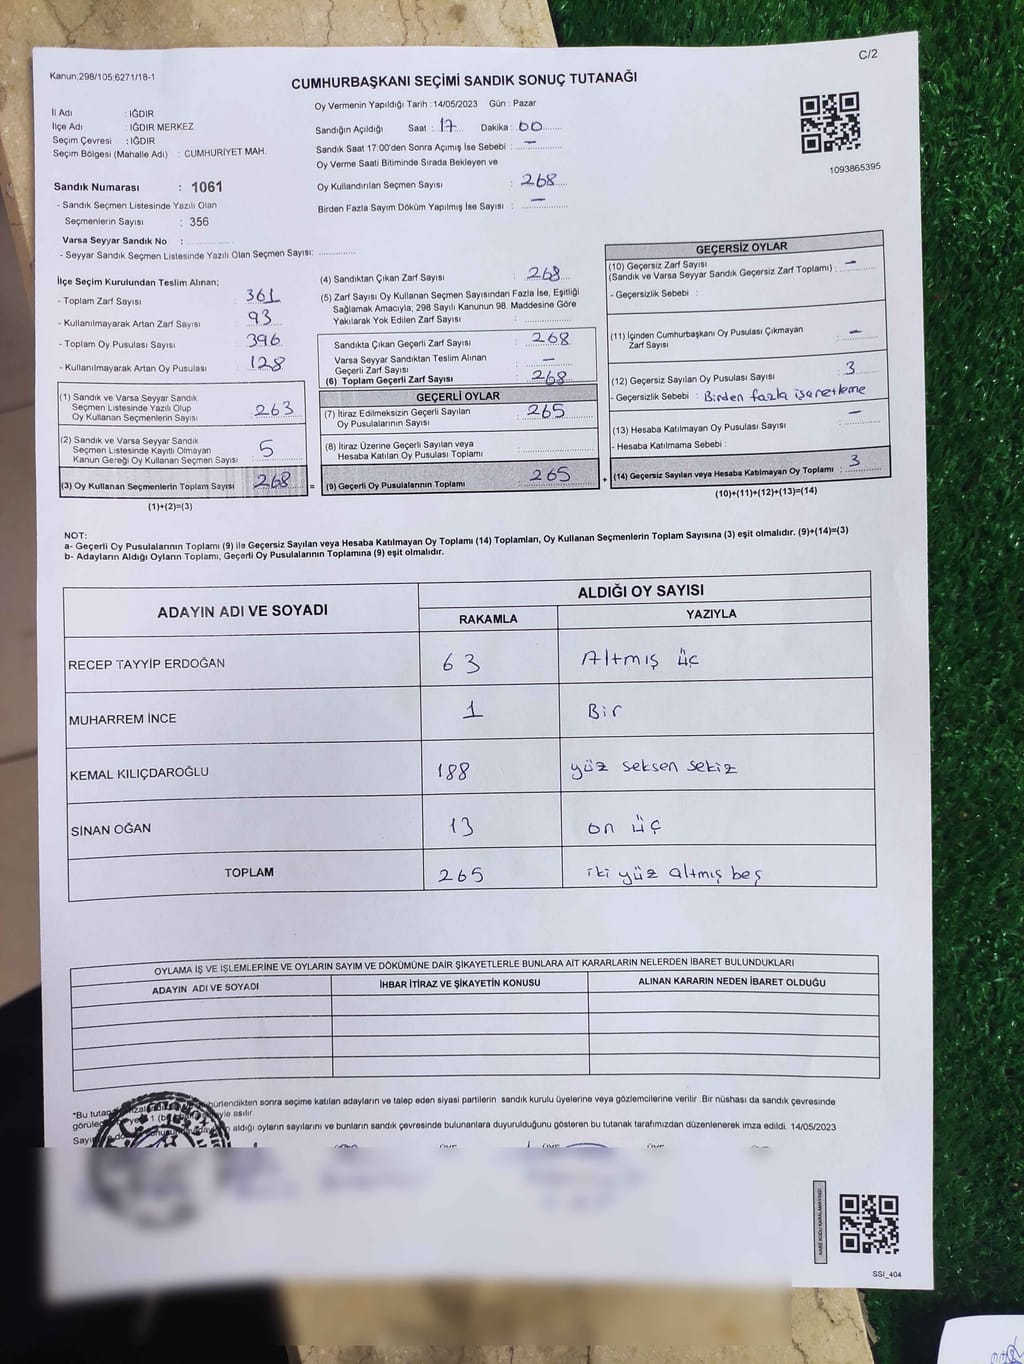 C/2
Kanun;298/105;6271/18-1
CUMHURBAŞKANI SEÇİMİ SANDIK SONUÇ TUTANAĞI
İl Adı : IĞDIR
İlçe Adı : IĞDIR MERKEZ
Seçim Çevresi : IĞDIR
Seçim Bölgesi (Mahalle Adı) : CUMHURİYET MAH.
Sandık Numarası : 1061
- Sandık Seçmen Listesinde Yazılı Olan
Seçmenlerin Sayısı : 356
Varsa Seyyar Sandık No :
- Seyyar Sandık Seçmen Listesinde Yazılı Olan Seçmen Sayısı:
Oy Vermenin Yapıldığı Tarih : 14/05/2023 Gün : Pazar
Sandığın Açıldığı Saat : 17 Dakika : 00
Sandık Saat 17:00'den Sonra Açımış İse Sebebi : -
Oy Verme Saati Bitiminde Sırada Bekleyen ve
Oy Kullandırılan Seçmen Sayısı : 268
Birden Fazla Sayım Döküm Yapılmış İse Sayısı : -
1093865395
İlçe Seçim Kurulundan Teslim Alınan;
- Toplam Zarf Sayısı : 361
- Kullanılmayarak Artan Zarf Sayısı : 93
- Toplam Oy Pusulası Sayısı : 396
- Kullanılmayarak Artan Oy Pusulası : 128
(1) Sandık ve Varsa Seyyar Sandık
Seçmen Listesinde Yazılı Olup
Oy Kullanan Seçmenlerin Sayısı : 263
(2) Sandık ve Varsa Seyyar Sandık
Seçmen Listesinde Kayıtlı Olmayan
Kanun Gereği Oy Kullanan Seçmen Sayısı : 5
(3) Oy Kullanan Seçmenlerin Toplam Sayısı : 268
(1)+(2)=(3)
(4) Sandıktan Çıkan Zarf Sayısı : 268
(5) Zarf Sayısı Oy Kullanan Seçmen Sayısından Fazla İse, Eşitliği
Sağlamak Amacıyla; 298 Sayılı Kanunun 98. Maddesine Göre
Yakılarak Yok Edilen Zarf Sayısı :
Sandıkta Çıkan Geçerli Zarf Sayısı : 268
Varsa Seyyar Sandıktan Teslim Alınan
Geçerli Zarf Sayısı : -
(6) Toplam Geçerli Zarf Sayısı : 268
GEÇERLİ OYLAR
(7) İtiraz Edilmeksizin Geçerli Sayılan
Oy Pusulalarının Sayısı : 265
(8) İtiraz Üzerine Geçerli Sayılan veya
Hesaba Katılan Oy Pusulası Toplamı :
= (9) Geçerli Oy Pusulalarının Toplamı : 265
GEÇERSİZ OYLAR
(10) Geçersiz Zarf Sayısı
(Sandık ve Varsa Seyyar Sandık Geçersiz Zarf Toplamı) : -
- Geçersizlik Sebebi :
(11) İçinden Cumhurbaşkanı Oy Pusulası Çıkmayan
Zarf Sayısı : -
(12) Geçersiz Sayılan Oy Pusulası Sayısı : 3
- Geçersizlik Sebebi : Birden fazla işaretleme
(13) Hesaba Katılmayan Oy Pusulası Sayısı : -
- Hesaba Katılmama Sebebi :
+ (14) Geçersiz Sayılan veya Hesaba Katılmayan Oy Toplamı : 3
(10)+(11)+(12)+(13)=(14)
NOT:
a- Geçerli Oy Pusulalarının Toplamı (9) ile Geçersiz Sayılan veya Hesaba Katılmayan Oy Toplamı (14) Toplamları, Oy Kullanan Seçmenlerin Toplam Sayısına (3) eşit olmalıdır. (9)+(14)=(3)
b- Adayların Aldığı Oyların Toplamı, Geçerli Oy Pusulalarının Toplamına (9) eşit olmalıdır.
ADAYIN ADI VE SOYADI
ALDIĞI OY SAYISI
RAKAMLA YAZIYLA
RECEP TAYYİP ERDOĞAN 63 Altmış üç
MUHARREM İNCE 1 Bir
KEMAL KILIÇDAROĞLU 188 yüz seksen sekiz
SİNAN OĞAN 13 on üç
TOPLAM 265 iki yüz altmış beş
OYLAMA İŞ VE İŞLEMLERİNE VE OYLARIN SAYIM VE DÖKÜMÜNE DAİR ŞİKAYETLERLE BUNLARA AİT KARARLARIN NELERDEN İBARET BULUNDUKLARI
ADAYIN ADI VE SOYADI İHBAR İTİRAZ VE ŞİKAYETİN KONUSU ALINAN KARARIN NEDEN İBARET OLDUĞU
*Bu sonra seçime katılan adayların ve talep eden siyasi partilerin sandık kurulu üyelerine veya gözlemcilerine verilir .Bir nüshası da sandık çevresinde
asılır.
aldığı oyların sayılarını ve bunların sandık çevresinde bulunanlara duyurulduğunu gösteren bu tutanak tarafımızdan düzenlenerek imza edildi. 14/05/2023
KARE KODU KARALAMAYINIZ!
SSİ_404